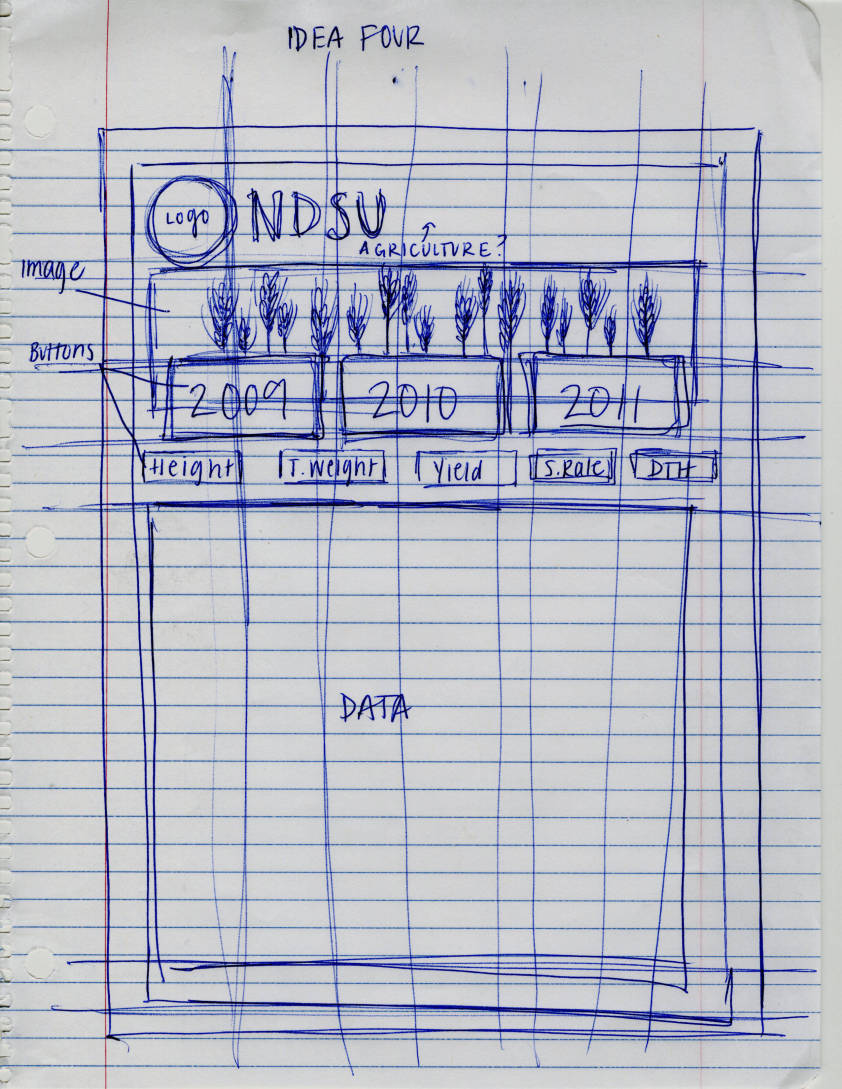 IDEA FOUR
LOGO NDSU
AGRICULTURE?
Image
Buttons
2009 2010 2011
Height T. Weight Yield S. Rate DTH
DATA